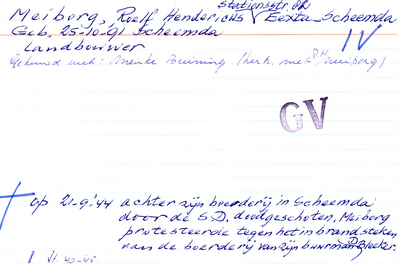 Stationsstr.
Meiborg, Roelf Hendericus Eexta-Scheemda
Geb. 25-10-91 Scheemda IV
Landbouwer
Gehuwd met: Menke Buining
GV
† op 21-9-'44 achter zijn boerderij in Scheemda
door de S.D. doodgeschoten. Meiborg
protesteerde tegen het in brand steken
van de boerderij van zijn buurman